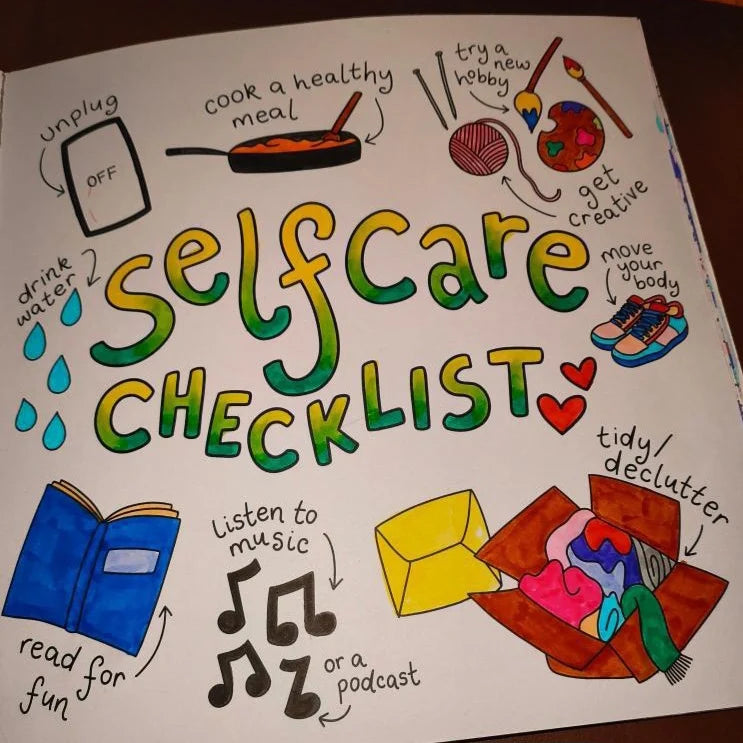 unplug
OFF
cook a healthy
meal
try a
new
hobby
get
creative
drink
water
Selfcare
CHECKLIST
move
your
body
tidy/
declutter
listen to
music
or a
podcast
read for
fun